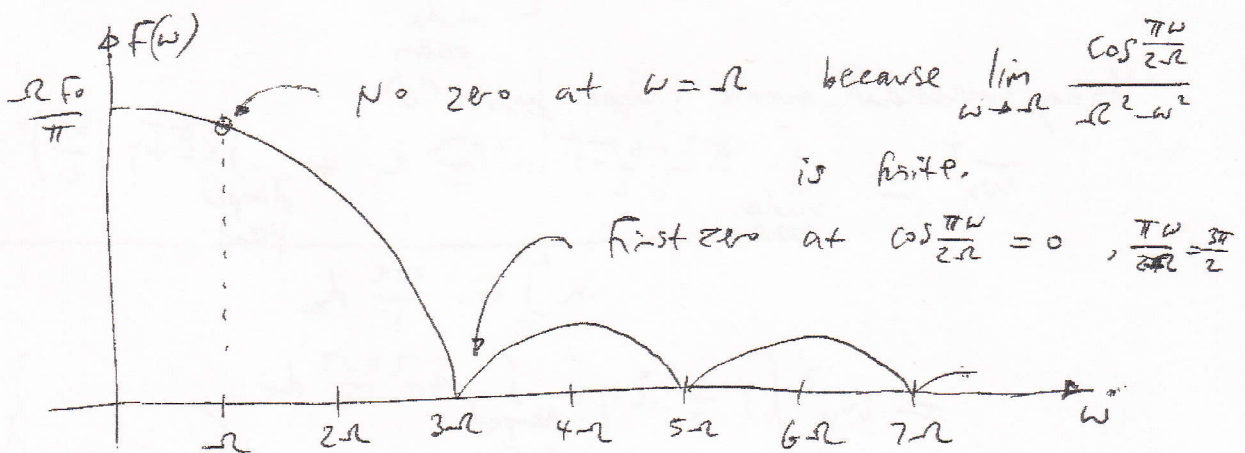 F(ω)
ΩF₀/π
No zero at ω = Ω because lim ω→Ω cos πω/2Ω / Ω² - ω²
is finite.
First zero at cos πω/2Ω = 0 , πω/2Ω = 3π/2
Ω 2Ω 3Ω 4Ω 5Ω 6Ω 7Ω ω